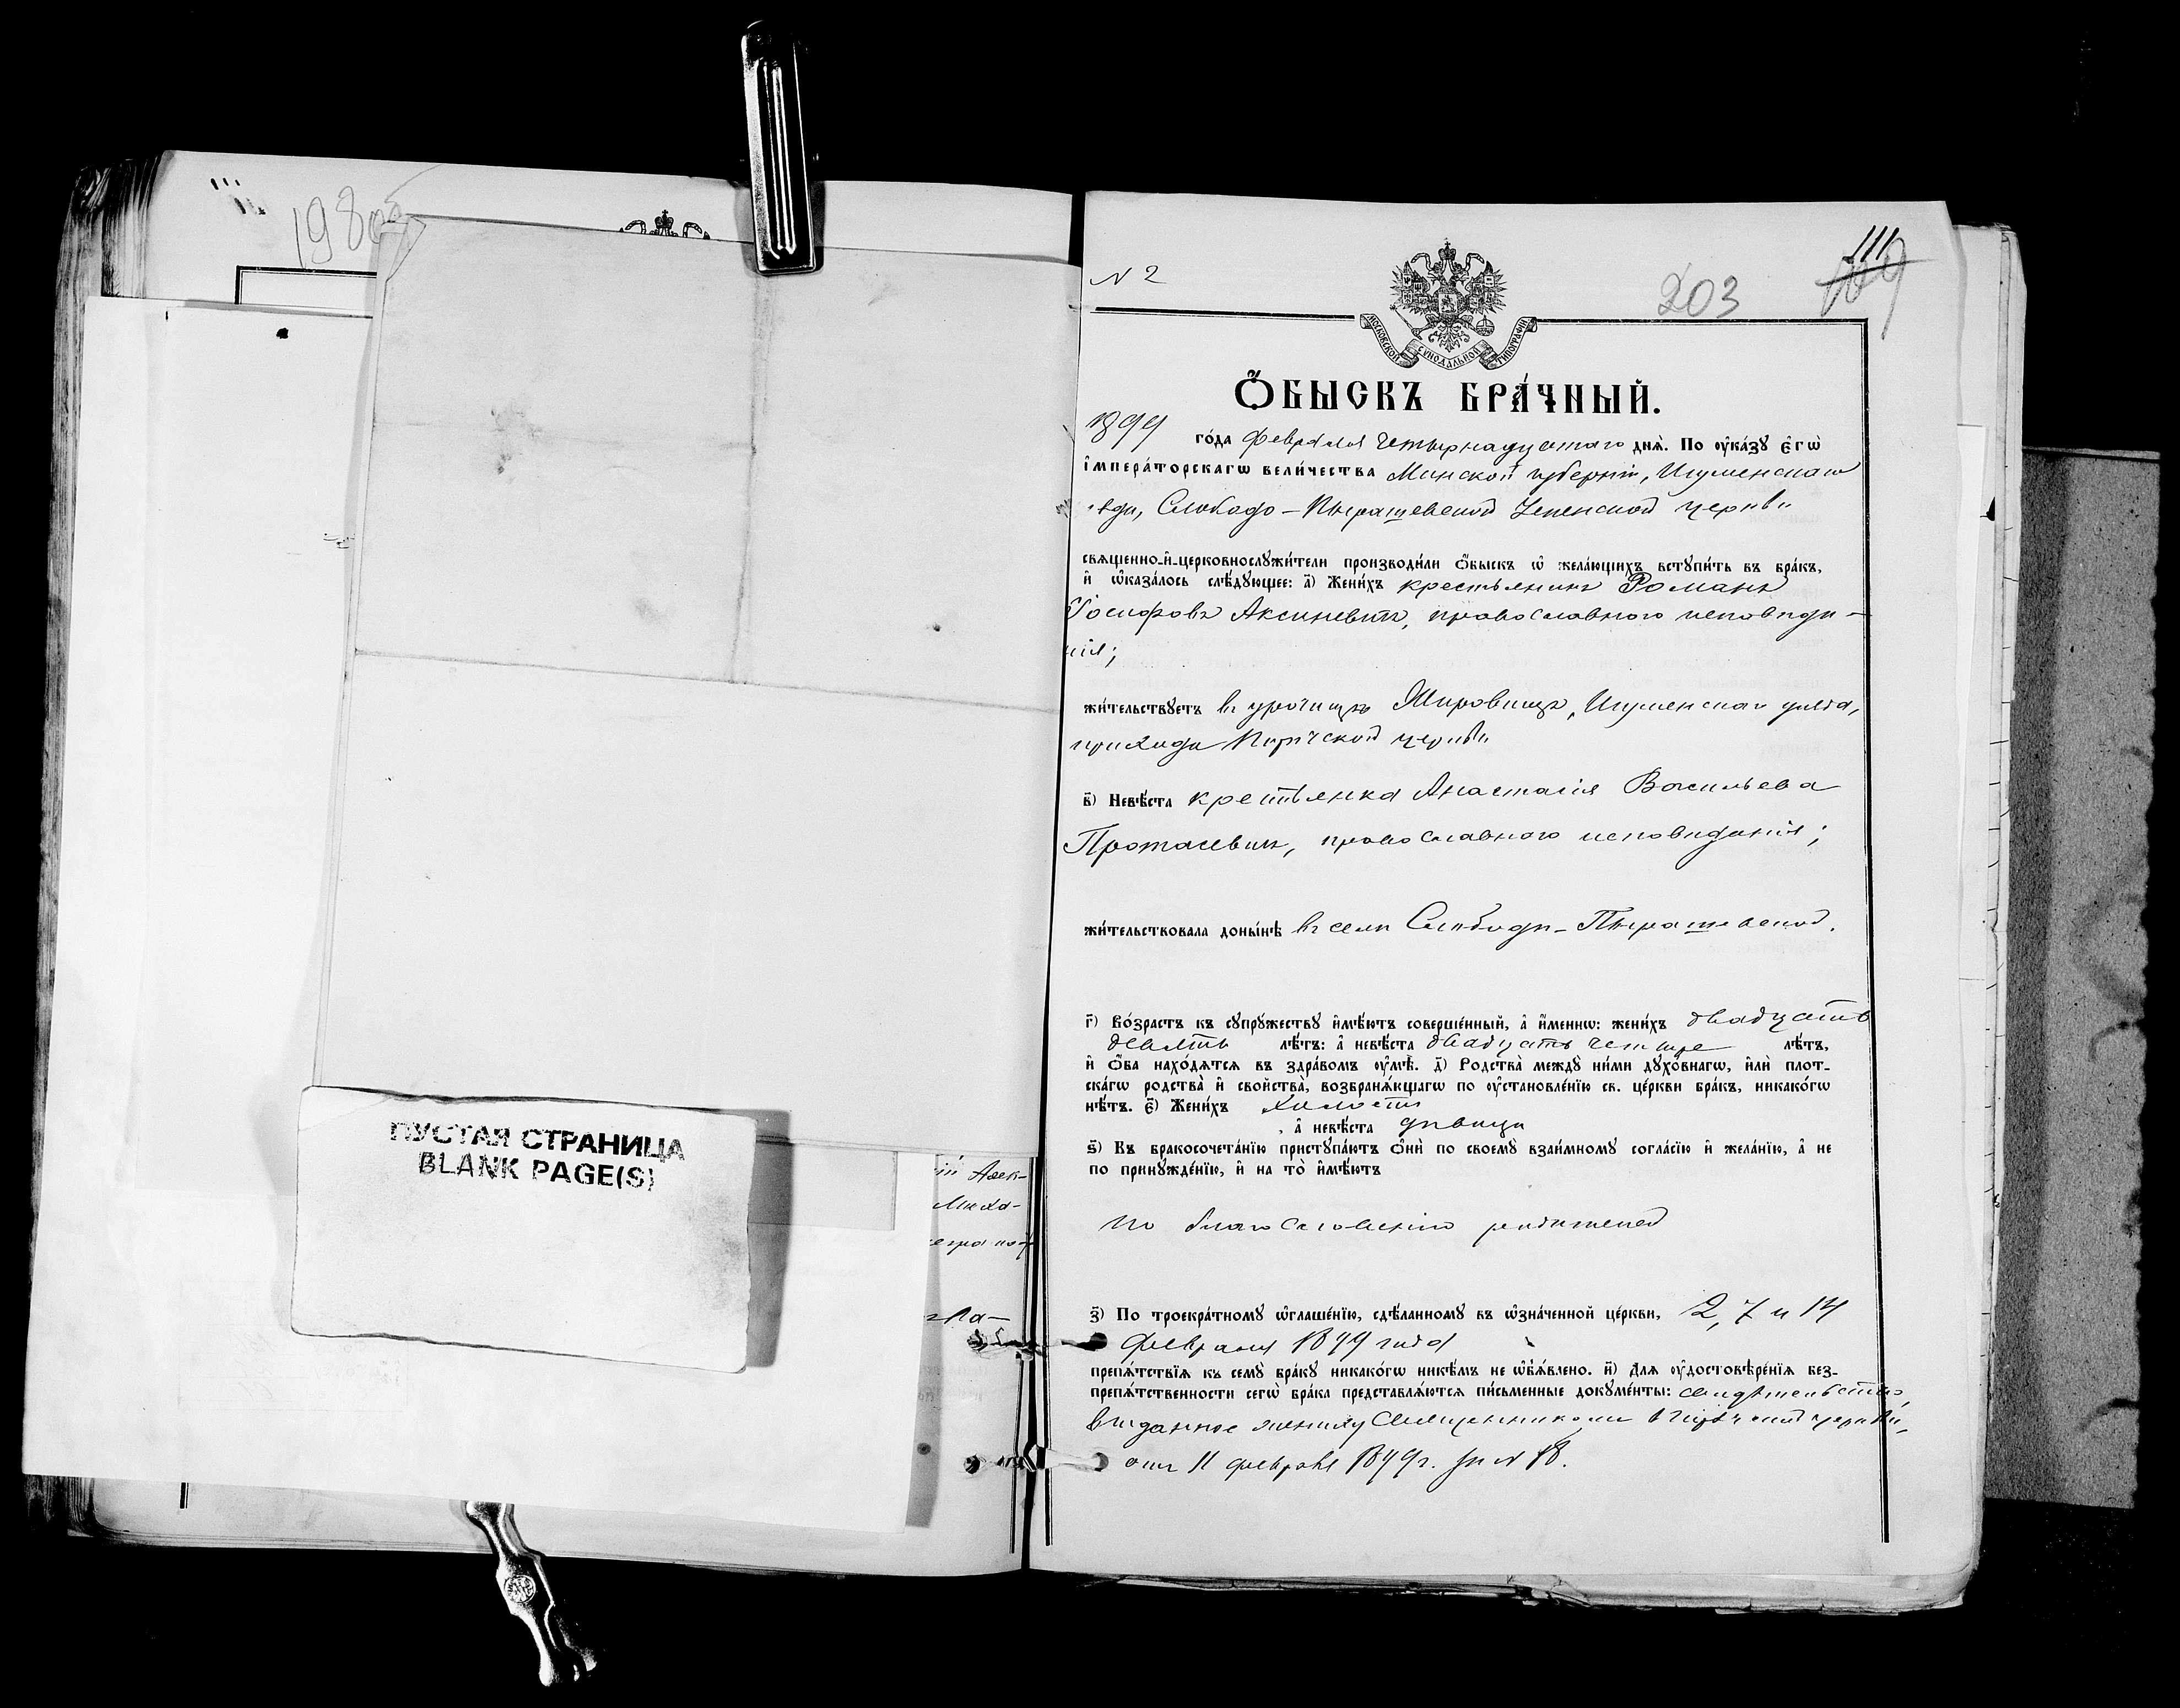 1980
ПУСТАЯ СТРАНИЦА
BLANK PAGE(S)
Алек-
Миха-
N 2
203
111
109
МОСКОВСКОЙ СѴНОДАЛЬНОЙ ТИПОГРАФІИ
Ѻ҆БЫСКЪ БРА́ЧНЫЙ.
1899 го́да февраля четырнадцатаго днѧ̀. По ᲂу҆ка́зꙋ є҆гѡ̀
і҆мпера́торскагѡ вели́чества Минской губерніи, Игуменскаго
уѣзда, Слободо-Пырашевской Успенской церкви
свѧщенно-и҆-церковнослꙋжи́тели производи́ли ѻ҆́быскъ ѡ҆ жела́ющихъ вступи́ть въ бра́къ,
и҆ ѡ҆каза́лось слѣ́дꙋющее: а҃) Жени́хъ крестьянинъ Романъ
Іосифовъ Аксиневичъ, православнаго исповѣда-
нія;
жи́тельствꙋетъ въ урочищѣ Жировищѣ, Игуменскаго уѣзда,
прихода церкви
в҃) Невѣ́ста крестьянка Анастасія Васильева
Протасевичъ, православнаго исповѣданія;
жи́тельствовала доны́нѣ въ селѣ Слободѣ-Пырашевской.
г҃) Во́зрастъ къ сꙋпрꙋ́жествꙋ и҆мѣ́ютъ соверше́нный, а҆ и҆́меннѡ: жени́хъ двадцать
девять лѣ́тъ: а҆ невѣ́ста двадцать четыре лѣ́тъ,
и҆ ѻ҆́ба нахо́дѧтсѧ въ здра́вомъ ᲂу҆мѣ̀. д҃) Родства̀ междꙋ̀ ни́ми дꙋхо́внагѡ, и҆лѝ плот-
ска́гѡ родства̀ и҆ сво́йства, возбранѧ́ющагѡ по ᲂу҆становле́нїю св. це́ркви бра́къ, никако́гѡ
нѣ́тъ. є҃) Жени́хъ холостъ
, а҆ невѣ́ста дѣвица
ѕ҃) Къ бракосочета́нїю пристꙋпа́ютъ ѻ҆нѝ по своемꙋ̀ взаи́мномꙋ согла́сїю и҆ жела́нїю, а҆ не
по принꙋжде́нїю, и҆ на то̀ и҆мѣ́ютъ
по благословенію родителей
з҃) По троекра́тномꙋ ѡ҆глаше́нїю, сдѣ́ланномꙋ въ ѡ҆зна́ченной це́ркви, 2, 7 и 14
февраля 1899 года
препѧ́тствїѧ къ семꙋ̀ бра́кꙋ никако́гѡ никѣ́мъ не ѡ҆б̾ѧ́влено. и҃) Длѧ ᲂу҆достовѣре́нїѧ без-
препѧ́тственности сегѡ̀ бра́ка представлѧ́ютсѧ пи́сьменные докꙋме́нты: свидѣтельство,
выданное жениху священникомъ церкви,
отъ 11 февраля 1899 г. за N 18.